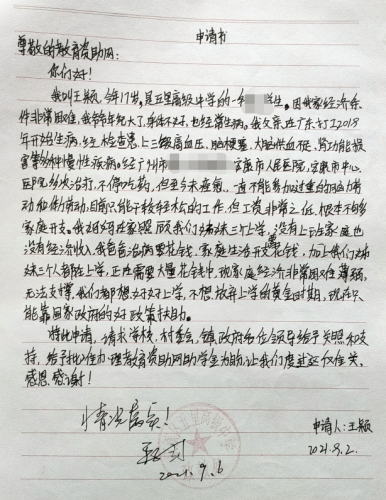 申请书
尊敬的教育资助网:
你们好!
我叫王颖,今年17岁,是五里高级中学的一名学生。因我家经济条
件非常困难,我爷爷年纪大了,身体不好,也经常生病。我父亲在广东打工2018
年开始生病,经检查患上三级高血压,脑梗塞,大脑供血不足,肾功能损
害等多种慢性疾病。经广州市 安康市人民医院,安康市中心
医院多次治疗,不停吃药,但至今未痊愈。一直不能参加过重的脑力劳
动和体力劳动,目前只能干较轻松的工作,但工资非常之低,根本不够多
家庭开支。我妈妈在家照顾我们姊妹三个上学,没有上班家庭也
没有经济收入,我爸爸治病要花钱,家庭生活开支要花钱,加上我们姊
妹三个都在上学,正在需要大量花钱中,现家庭经济非常困难薄弱,
无法支撑,我们都想好好上学,不想放弃上学的黄金时期,现在只
能靠国家政府的好政策扶助。
特此申请,请求学校,村委会,镇政府给位领导给予关照和支
持,给予批准办理教育资助网助学金为盼,让我们度过这次难关,
感恩感谢!
情况属实!
2021.9.6
申请人:王颖
2021.9.2.